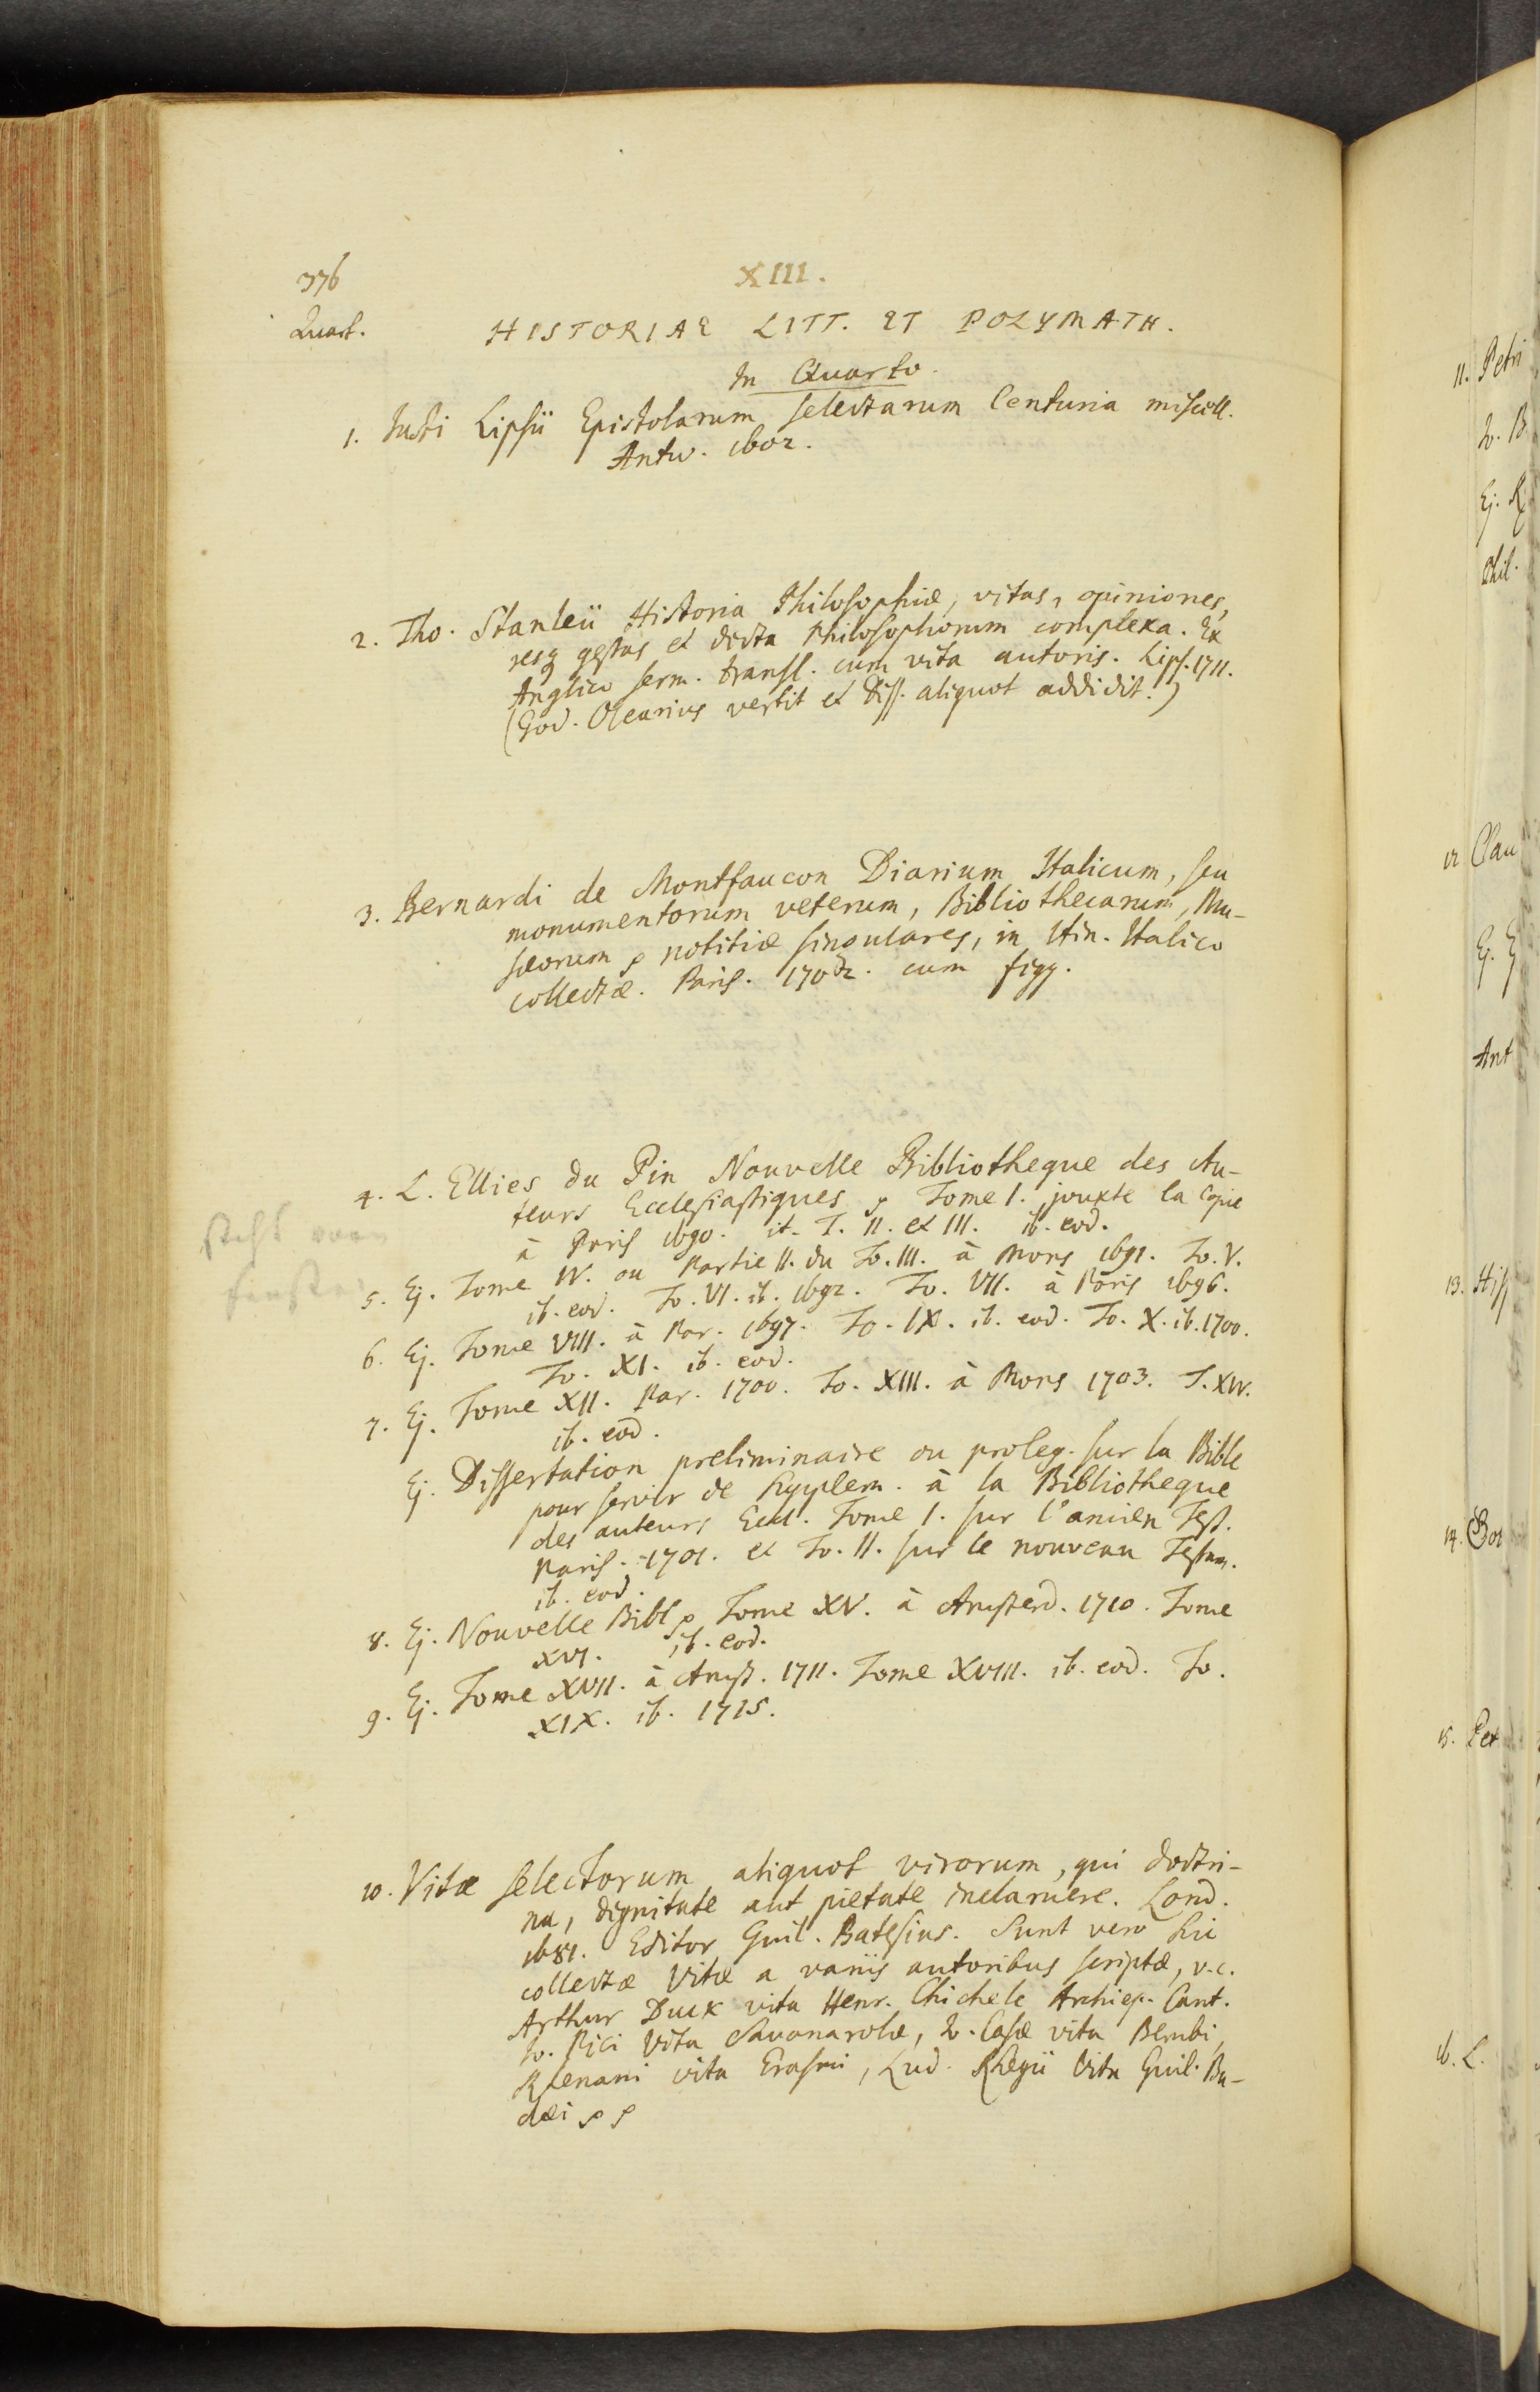 376
XIII.
Quart.
HISTORIAE LITT. ET POLYMATH.
In Quarto.
1. Justi Lipsii Epistolarum selectarum Centuria miscell.
Antw. 1602.
2. Tho. Stanleii Historia Philosophiæ, vitas, opiniones,
resq gestas et dicta Philosophorum complexa. Ex
Anglico serm. transl. cum vita autoris. Lips. 1711.
(God. Olearius vertit et Diss. aliquot addidit.)
3. Bernardi de Montfaucon Diarium Italicum, seu
monumentorum veterum, Bibliothecarum, Mu-
sæorum ꝛc notitiæ singulares, in Itin. Italico
collectæ. Paris. 1702. cum figg.
4. L. Ellies du Pin Nouvelle Bibliotheque des Au-
teurs Ecclesiastiques ꝛc Tome I. jouxte la Copie
à Paris 1690. it. T. II. et III. ib. eod.
steht vorn
fenster
5. Ej. Tome IV. ou Partie II. du To. III. à Mons 1691. To. V.
ib. eod. To. VI. ib. 1692. To. VII. à Paris 1696.
6. Ej. Tome VIII. à Par. 1697. To. IX. ib. eod. To. X. ib. 1700.
To. XI. ib. eod.
7. Ej. Tome XII. Par. 1700. To. XIII. à Mons 1703. T. XIV.
ib. eod.
Ej. Dissertation preliminaire ou proleg. sur la Bible
pour servir de supplem. à la Bibliotheque
des auteurs Eccl. Tome I. sur l'ancien Test.
Paris. 1701. et To. II. sur le nouveau Testam.
ib. eod.
8. Ej. Nouvelle Bibl ꝛc Tome XV. à Amsterd. 1710. Tome
XVI. ib. eod.
9. Ej. Tome XVII. à Amst. 1711. Tome XVIII. ib. eod. To.
XIX. ib. 1715.
10. Vitæ selectorum aliquot virorum, qui doctri-
na, dignitate aut pietate inclaruere. Lond.
1681. Editor Guil. Batesius. Sunt vero hic
collectæ Vitæ a variis autoribus scriptæ, v.c.
Arthur Duck vita Henr. Chichele Archiep. Cant.
Jo. Pici Vita Savanarolæ, Jo. Casæ vita Bembi,
Rhenani vita Erasmi, Lud. Rhegii Vita Guil. Bu-
dæi ꝛc ꝛc
11. Petri
Jo. B
Ej. R
Phil.
12 Clau
Ej. E
Ant
13. Hiſ
14. Bor
15. Pet
16. L.